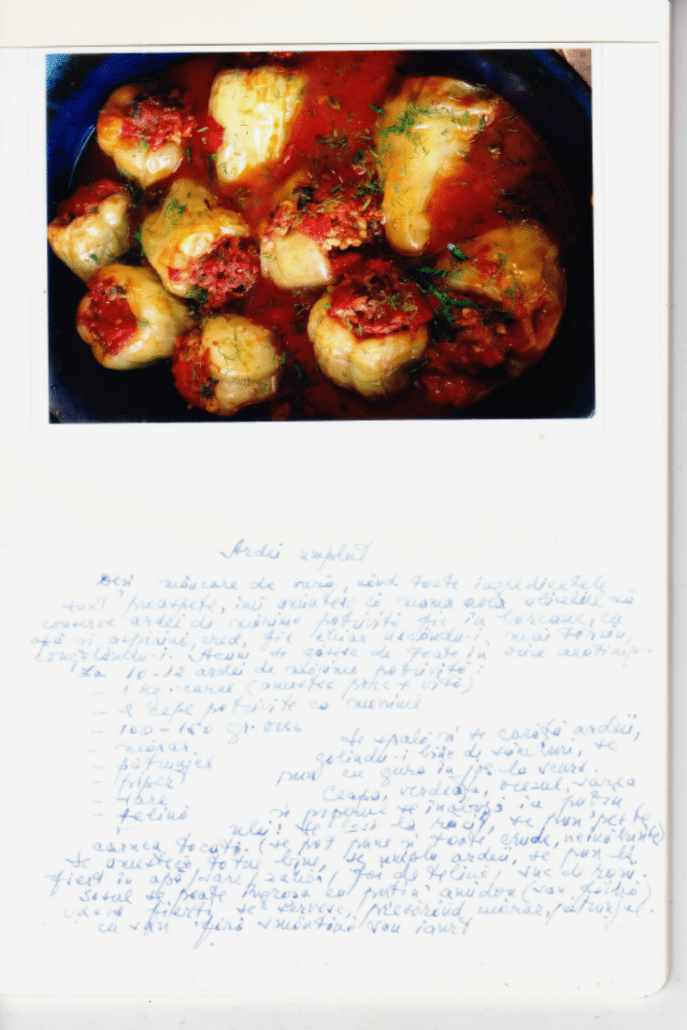 Ardei umpluți
Deși mâncare de vară, când toate ingredientele
sunt proaspete, îmi amintesc că mama avea obiceiul să
conserve ardei de mărime potrivită fie în borcane, cu
apă și aspirină, cred, fie chiar uscându-i, mai târziu,
congelându-i. Acum se găsesc de toate în orice anotimp.
La 10-12 ardei de mărime potrivită:
- 1 kg. carne (amestec porc + vită)
- 2 cepe potrivite ca mărime
- 100-150 gr. orez
- mărar
- pătrunjel
- piper
- sare
- țelină
Se spală și se curăță ardeii,
golindu-i bine de sâmburi, se
pun cu gura în jos la scurs.
Ceapa, verdeața, orezul, sarea
și piperul se înăbușă în puțin
ulei. Se lasă la răcit, se pun peste
carnea tocată. (Se pot pune și toate crude, neînăbușite)
Se amestecă totul bine, se umplu ardeii, se pun la
fiert în apă, sare, zahăr, foi de țelină, suc de roșii.
Sosul se poate îngroșa cu puțin amidon (sau făină)
fierți se servesc, presărând mărar, pătrunjel.
cu sau fără smântână sau iaurt